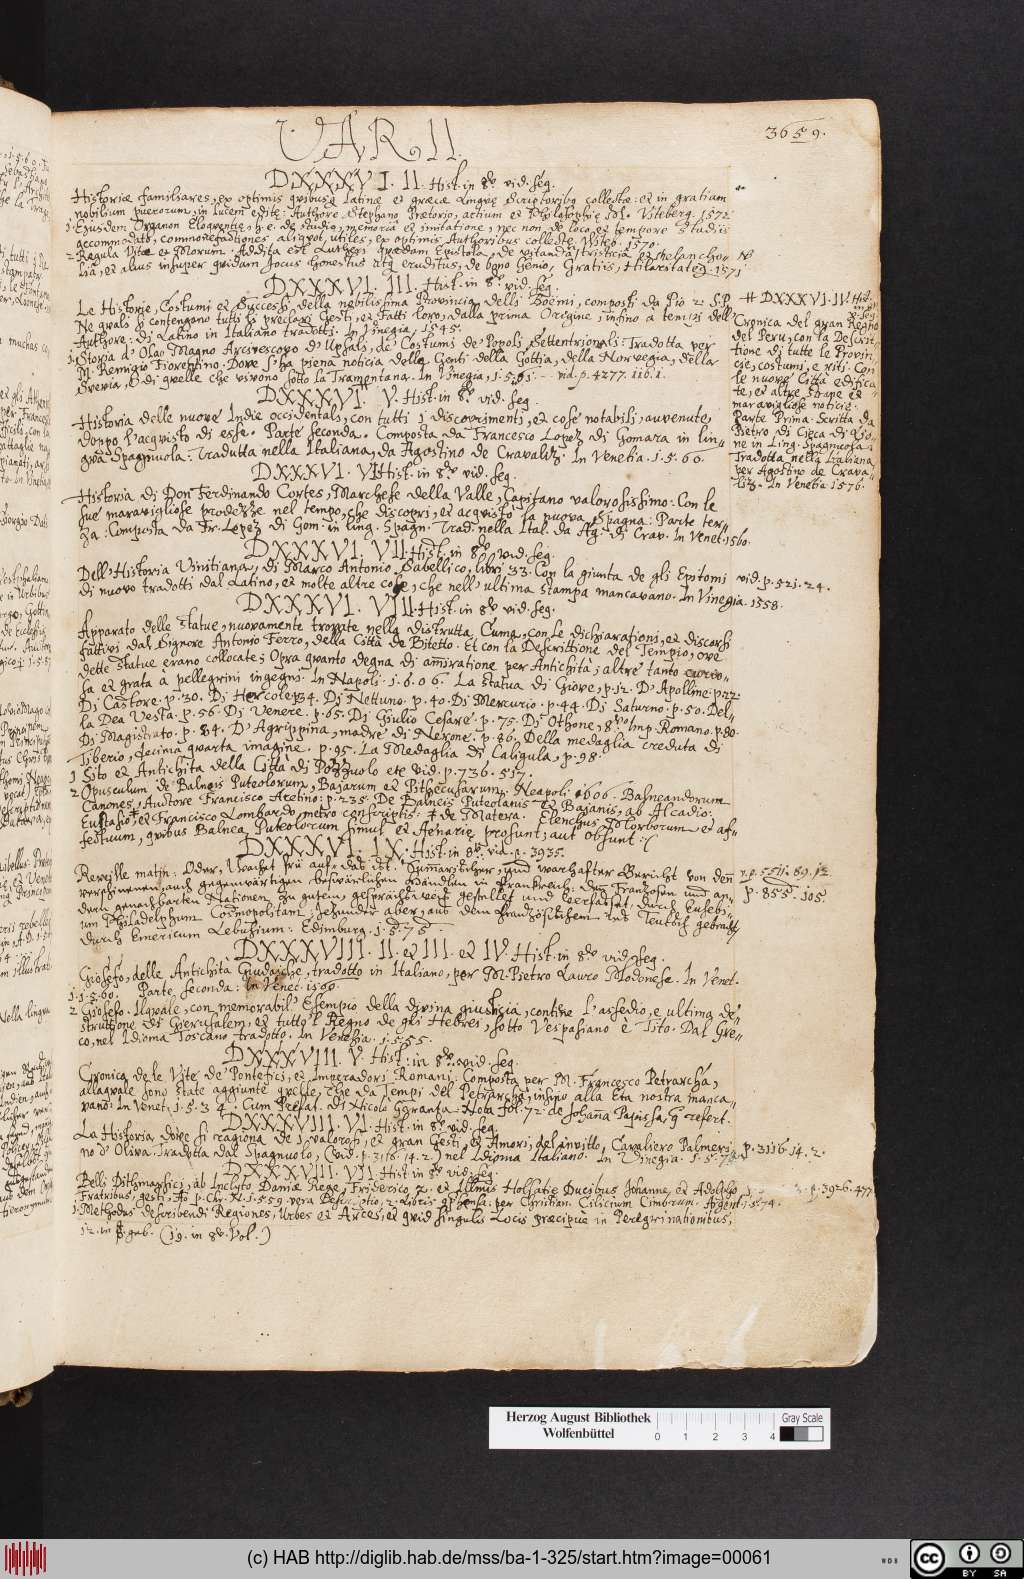 VARII.
3659.
DXXXVI. II. Hist. in 8º. vid. seg.
Historiæ familiares, ex optimis quibusq Latinæ et græcæ linguę Scriptoribq collectæ: et in gratiam
nobilium puerorum, in lucem editę: Authore Stephano Prætorio, artium et Philosophię M. Viteberg. 1572
1 Ejusdem Organon Eloquentię, h. e. de studio, memoria et imitatione, nec non de loco, et tempore Studiis
accommodato, commonefactiones aliquot utiles, ex optimis Authoribus collectę. Viteb. 1570.
2 Regula Vitæ et Morum. Addita est Lutheri quædam Epistola, De vitanda tristitia et Melancho-
lia, et alius insuper quidam Jocus honestus atq eruditus, de bono Genio, Gratiis, Hilaritate. 1571
DXXXVI. III. Hist. in 8º. vid. seg.
Le Historie, Costumi et Successi, della nobilissima Provincia delli Boëmi, composti da Pio 2 S.P.
Ne quali si contengano tutti li preclari Gesti, et Fatti loro, dalla prima Origine, infino a tempi dell'
Authore: di Latino in Italiano tradotti. In Vinegia, 1545.
1 Storia d' Olao Magno Arcivescovo d' Upsali, de' Costumi de' Popoli Settentrionali: Tradotta per
M. Remigio Fiorentino. Dove s'ha piena noticia delle Genti della Gottia, della Norvegia, della
Svevia, e di quelle che vivono sotto la Tramontana. In Vinegia, 1.5.61. vid. p. 4277. 116. 1.
DXXXVI. V. Hist. in 8º. vid. seg.
Historia delle nuove Indie occidentali, con tutti i discoprimenti, et cose notabili, auvenute,
doppo l'acquisto di esse. Parte seconda. Composta da Francesco Lopez di Gomara in lin-
gua Spagnuola: Tradutta nella Italiana, da Agostino de Cravaliz. In Venetia. 1.5.60.
DXXXVI. VI Hist. in 8º. vid. seg.
Historia di Don Ferdinando Cortes, Marchese della Valle, Capitano valorosissimo: Con le
sue maravigliose prodezze nel tempo, che discoprì, et acquistò la nuova Spagna: Parte ter-
za: Composta da Fr. Lopez di Gom. in ling. Spagn. Trad. nella Ital. da Ag. di Crav. In Venet. 1560.
DXXXVI. VII. Hist. in 8º. vid. seg.
Dell' Historia Vinitiana, di Marco Antonio Sabellico, libri 33. Con la giunta de gli Epitomi vid. p. 521. 24.
di nuovo tradotti dal Latino, et molte altre cose, che nell' ultima stampa mancavano. In Vinegia. 1558.
DXXXVI. VIII. Hist. in 8º vid. seg.
Apparato delle Statue, nuovamente trovate nella distrutta Cuma, con le dichiarationi, et discorsi
fattivi dal Signore Antonio Ferro, della Città de Bitetto. Et con la Descrittione del Tempio, ove
dette statue erano collocate; Opra quanto degna di amiratione per Antichità; altre tanto curio-
sa et grata à pellegrini ingegni. In Napoli. 1.6.0.6. La statua di Giove, p. 12. D' Apolline. p. 22
Di Castore. p. 30. Di Hercole 34. Di Nettuno. p. 40. Di Mercurio. p. 44. Di Saturno. p. 50. Del-
la Dea Vesta. p. 56. Di Venere. p. 65. Di Giulio Cesare. p. 75. Di Othone, 8vo Imp. Romano. p. 80.
Di Magistrato. p. 84. D' Agrippina, madre di Nerone. p. 86. Della medaglia creduta di
Tiberio, decima quarta imagine. p. 95. La Medaglia di Caligula, p. 98.
1 Sito et Antichità della Città di Pozzuolo etc vid. p. 736. 517.
2 Opusculum de Balneis Puteolorum, Bajarum et Pithecusarum. Neapoli 1606. Balneandorum
Canones, Auctore Francisco Aretino: p. 235. De Balneis Puteolanis et Bajanis, ab Alcadio:
Eustasio, et Francisco Lombardo, metro conscriptis: # de Matera. Elenchus Morborum et af-
fectuum, quibus Balnea Puteolorum simul et Aenarię prosunt, aut obsunt: (
DXXXVI. IX. Hist. in 8º. vid. p. 3935.
Reveille matin: Oder, Wachet frü auf: das ist, Summarischer, und warhafter Bericht von den
verschinenen, auch gegenwärtigen, beswärlichen Händlen in Franckreich: den Franzosen und an-
dern genachbarten Nationen zu gutem, gesprächsweis gestellet und verfasset, durch Eusebi-
um Philadelphum Cosmopolitam, jetzunder aber, aus dem Französischem ins Teutsch gebracht,
durch Emericum Lebusium: Edimburg. 1.5.75.
DXXXVIII. II. et III. et IV. Hist. in 8º. vid. seg.
Giosefo, delle Antichita Giudaiche, tradotto in Italiano, per M. Pietro Lauro Modonese. In Venet.
1.1.5.60. Parte seconda: In Venet. 1560.
2 Giosefo. Ilquale, con memorabil' Essempio della divina giustitia, contine l'assedio, e ultima de-
struttione di Gierusalem, et tutto 'l Regno de gli Hebrei, sotto Vespasiano e Tito. Dal Gre-
co, nel Idioma Toscano tradotto. In Venetia. 1.5.55.
DXXXVIII. V. Hist. in 8º. vid. seg.
Cronica de le Vite de' Pontefici, et Imperadori Romani. Composta per M. Francesco Petrarcha,
allaquale sono state aggiunte quelle, che da Tempi del Petrarcha, infino alla Eta nostra manca-
vano: In Venet. 1.5.3.4. Cum Præfat. di Nicolo Garanta. Nota fol. 72. de Johanna Papissa, q. refert.
DXXXVIII. VI. Hist. in 8º. vid. seg.
La Historia, dove si ragiona de i valorosi, et gran Gesti, et Amori, del invitto, Cavaliero Palmeri- p. 3116. 14. 2.
no d' Oliva. Tradotta dal Spagnuolo, (vid. p. 3118. 14. 2.) nel Idioma Italiano. In Vinegia. 1.5.7
DXXXVIII. VII. Hist. in 8º vid. seg.
Belli Dithmarsici, ab Inclyto Daniæ Rege, Friderico 2. et Illmis Holsatię Ducibus Johanne, et Adolpho p. 3926. 477
Fratribus, gesti, Ao p. Chr. N. 1.559. vera Descriptio, 2. libris comprehensa: per Christian. Cilicium Cimbrum. Argent. 1.5.74.
1 Methodus describendi Regiones, Urbes et Arces, et quid singulis Locis præcipuè in Peregrinationibus,
12. in 8. geb. (19. in 8v. Vol.)
# DXXXVI. IV. Hist.
in 8. seg.
Cronica del gran Regno
del Peru, con la Descrit-
tione di tutte le Provin-
cie, costumi, e riti. Con
le nuove Città edifica-
te, et altre strane et
maravigliose noticie.
Parte Prima. Scritta da
Pietro di Cieca di Lio-
ne in Ling. Spagnuola:
Tradotta nella Italiana,
per Agostino de Crava-
liz. In Venetia 1576.
v. p. 5511. 89. 12.
p. 855. 105.
Herzog August Bibliothek
Wolfenbüttel
0 1 2 3 4
Gray Scale
(c) HAB http://diglib.hab.de/mss/ba-1-325/start.htm?image=00061
WDB
cc BY SA